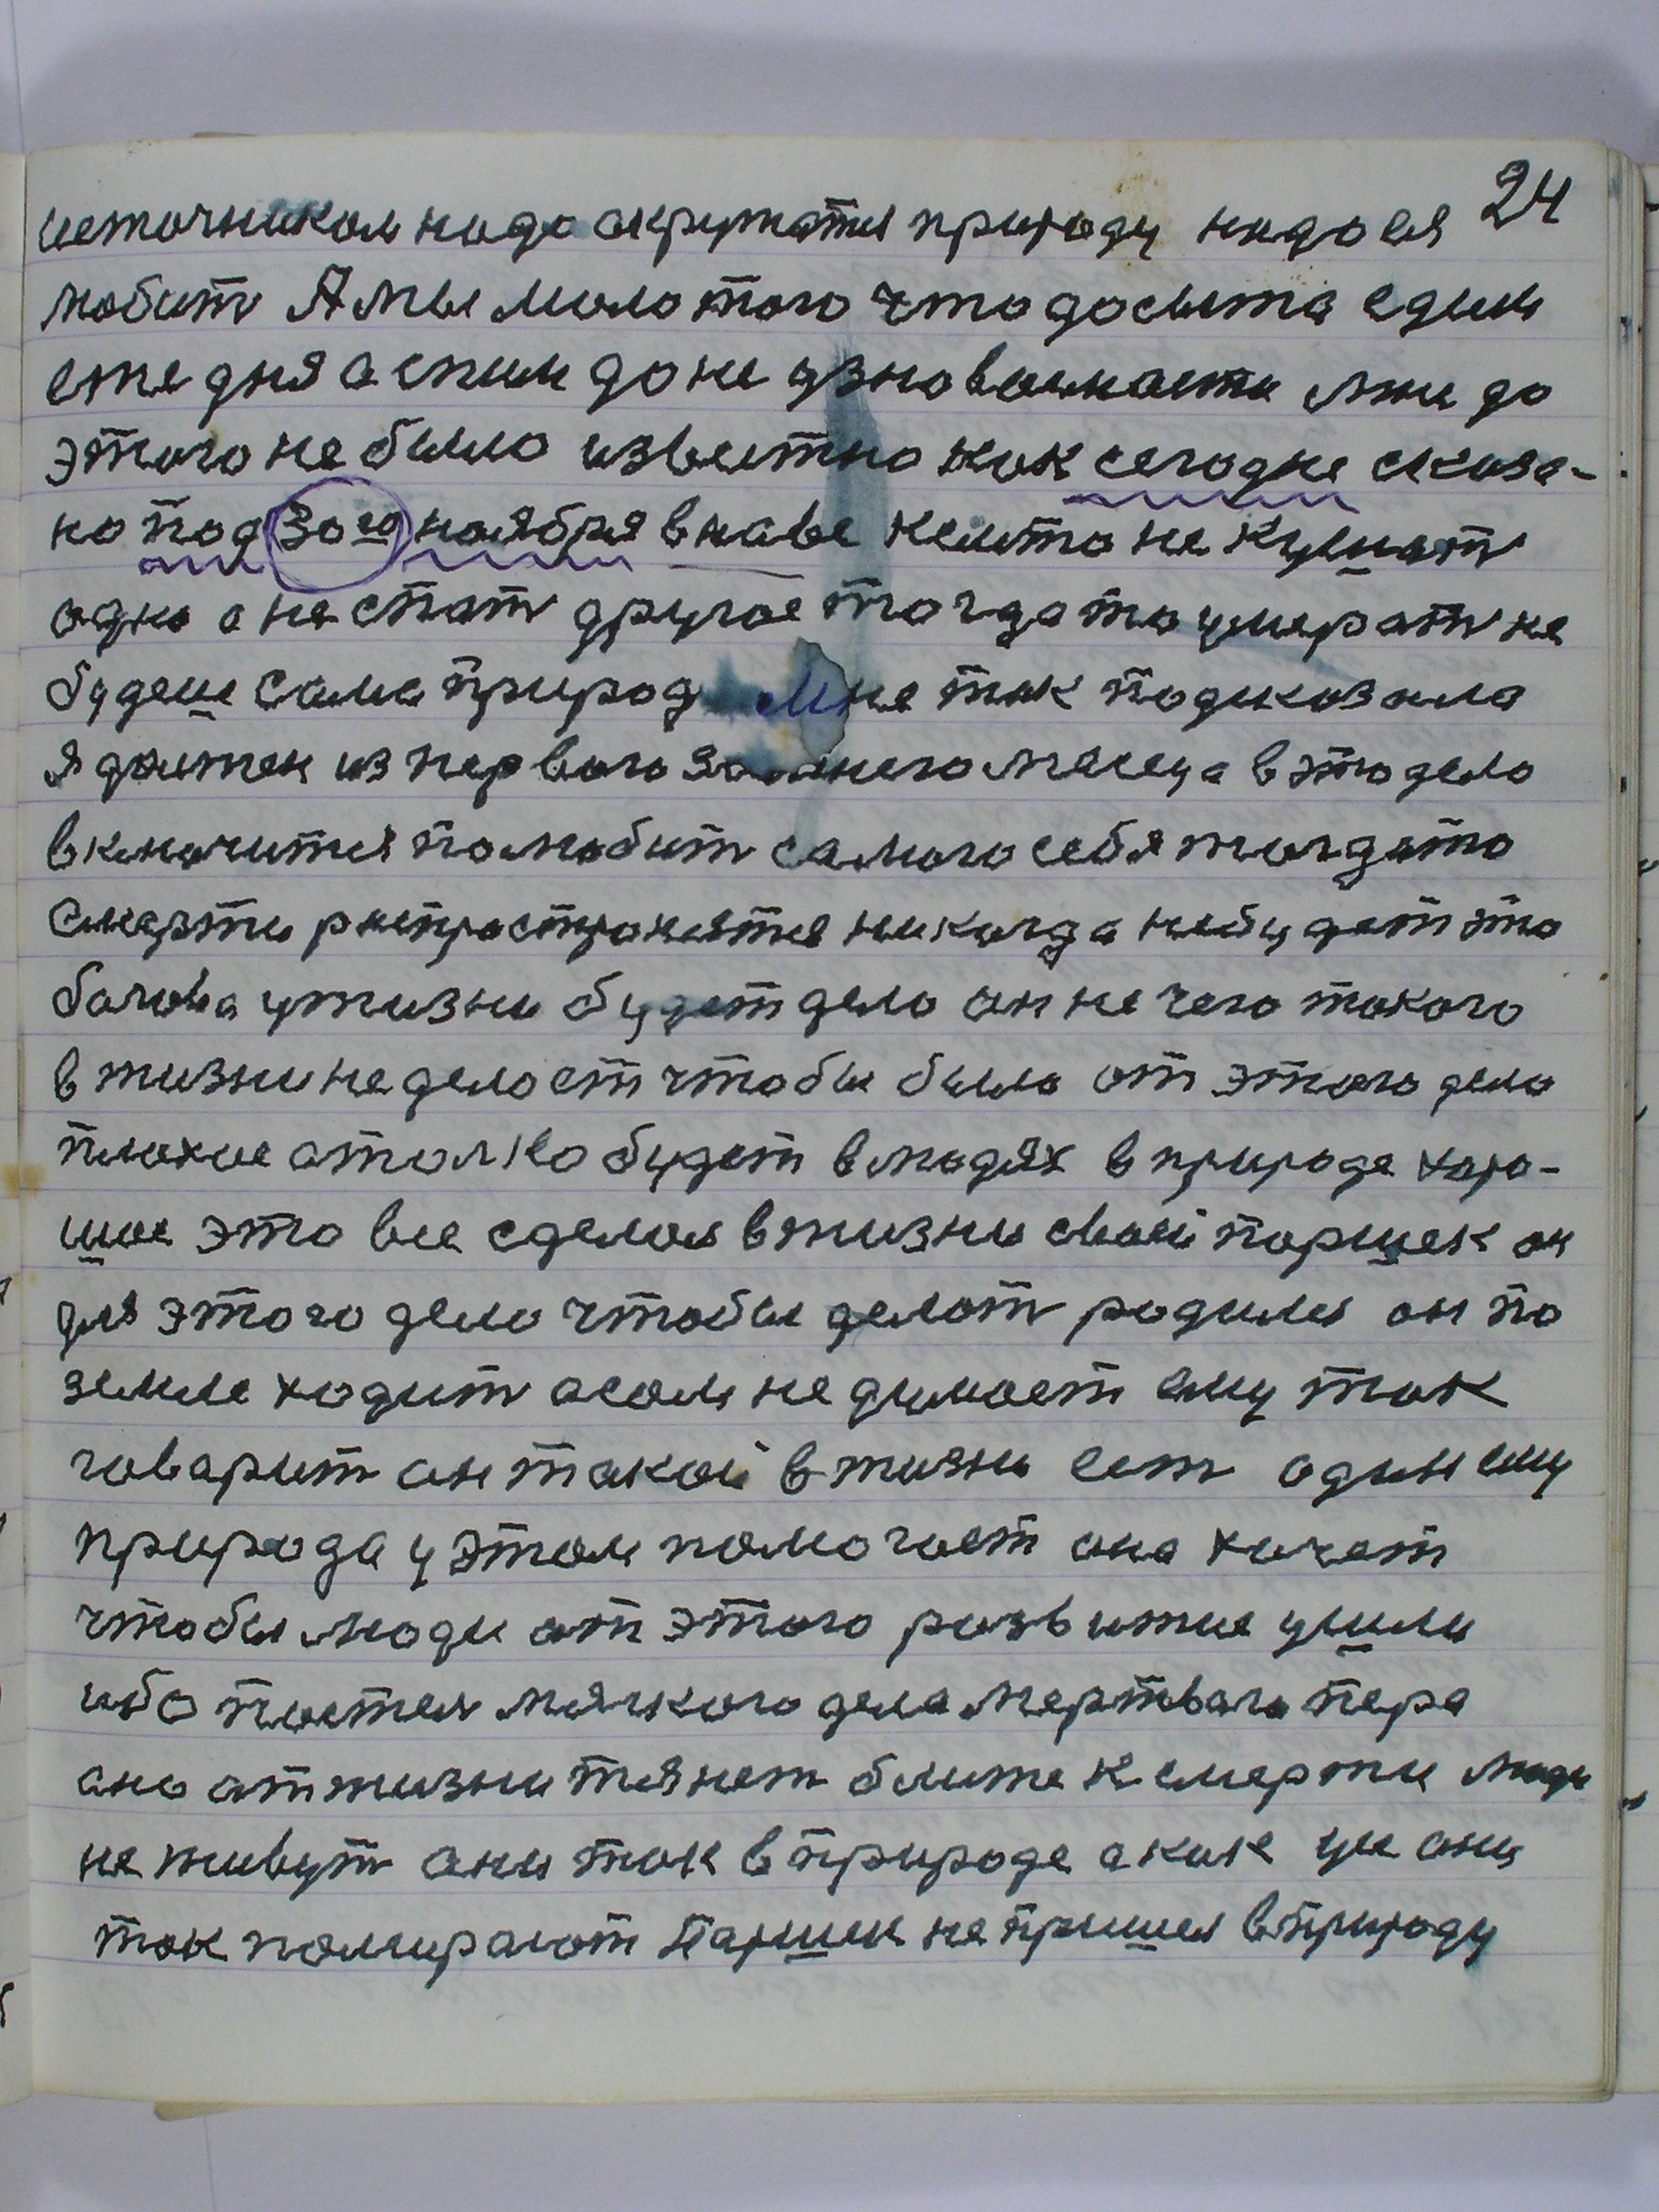 24
источником надо окружатся природу надо ея
любить А мы мало того что досыта едим
еже дня а спим до не узноваимасти мы до
этого не было известно как сегодне сказа-
но под 30го ноября внаве келито не кушать
одно а не спать другое тогда то умерать не
будеш сама природ Мне так подсказала
я должен из первого зимнего месеца в это дело
включится полюбить самого себя тогдато
смерти распространятся никогда небудет это
у жизни будет дело он не чего такого
в жизни не делает чтобы было от этого дела
плохое атолко будет в людях в природе харо-
шое это все сделал вжизни свой паршек он
для этого дела чтобы делать родился он по
земле ходить асам не думает ему так
говарит он такой в жизни есть один ему
природа у этом помогает она хочет
чтобы люди от этого развитие ушли
ибо постел мягкого дела мертвого пера
оно от жизни тянет ближе к смерти люди
не живут они так в природе а как ше они
так помирают Паршек не пришел в природу